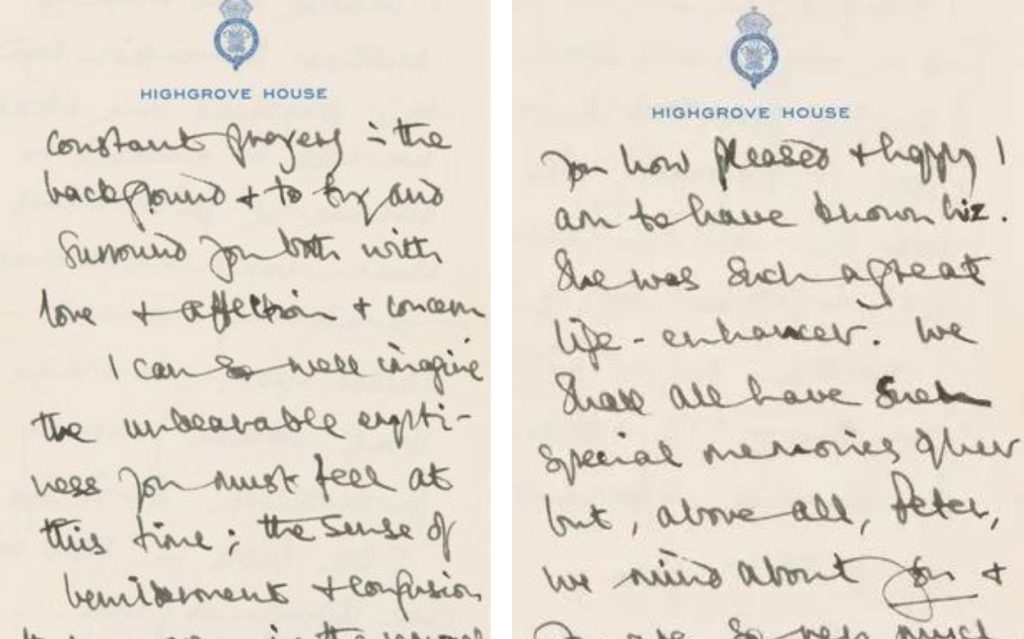 HIGHGROVE HOUSE
constant prayers in the
background + to try and
surround you both with
love + affection + concern
I can so well imagine
the unbearable empti-
ness you must feel at
this time; the sense of
bewilderment + confusion
HIGHGROVE HOUSE
you how pleased + happy I
am to have known Liz.
She was such a great
life-enhancer. We
shall all have such
special memories of her
but, above all, Peter,
we mind about you +